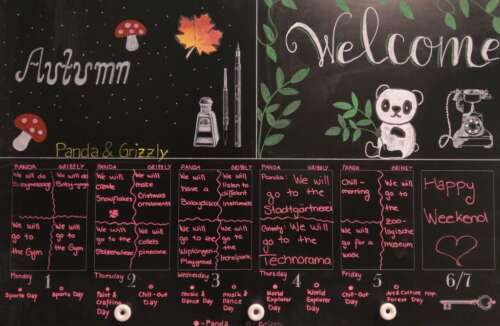 Autumn
Welcome
Panda & Grizzly
PANDA GRIZZLY PANDA GRIZZLY PANDA GRIZZLY PANDA GRIZZLY PANDA GRIZZLY
We will do
We will do
Baby-yoga
We will
create
Snowflakes
We will
make
Christmas
ornaments
We will
have a
Babydisco
We will
listen to
different
instruments
Panda: We will
go to the
Stadtgärtnerei
Chill-
morning
We will
go to
the
zoo-
logische
museum
Happy
Weekend
We will
go to
the Gym
We will
go to
the Gym
We will
go to
the
We will
collect
pinecone
We will
go to
the
Playground
We will
go to
the
Grizzly: We will
go to the
Technorama
We will
go for a
walk
Monday 1 Thursday 2 Wednesday 3 Thursday 4 Friday 5 6/7
Sports Day
Sports Day
Paint &
Crafting
Day
Chill-Out
Day
Music &
Dance
Day
Music &
Dance
Day
World
Explorer
Day
World
Explorer
Day
Chill-Out
Day
Art & Culture
Forest Day
- Panda
- Grizzly